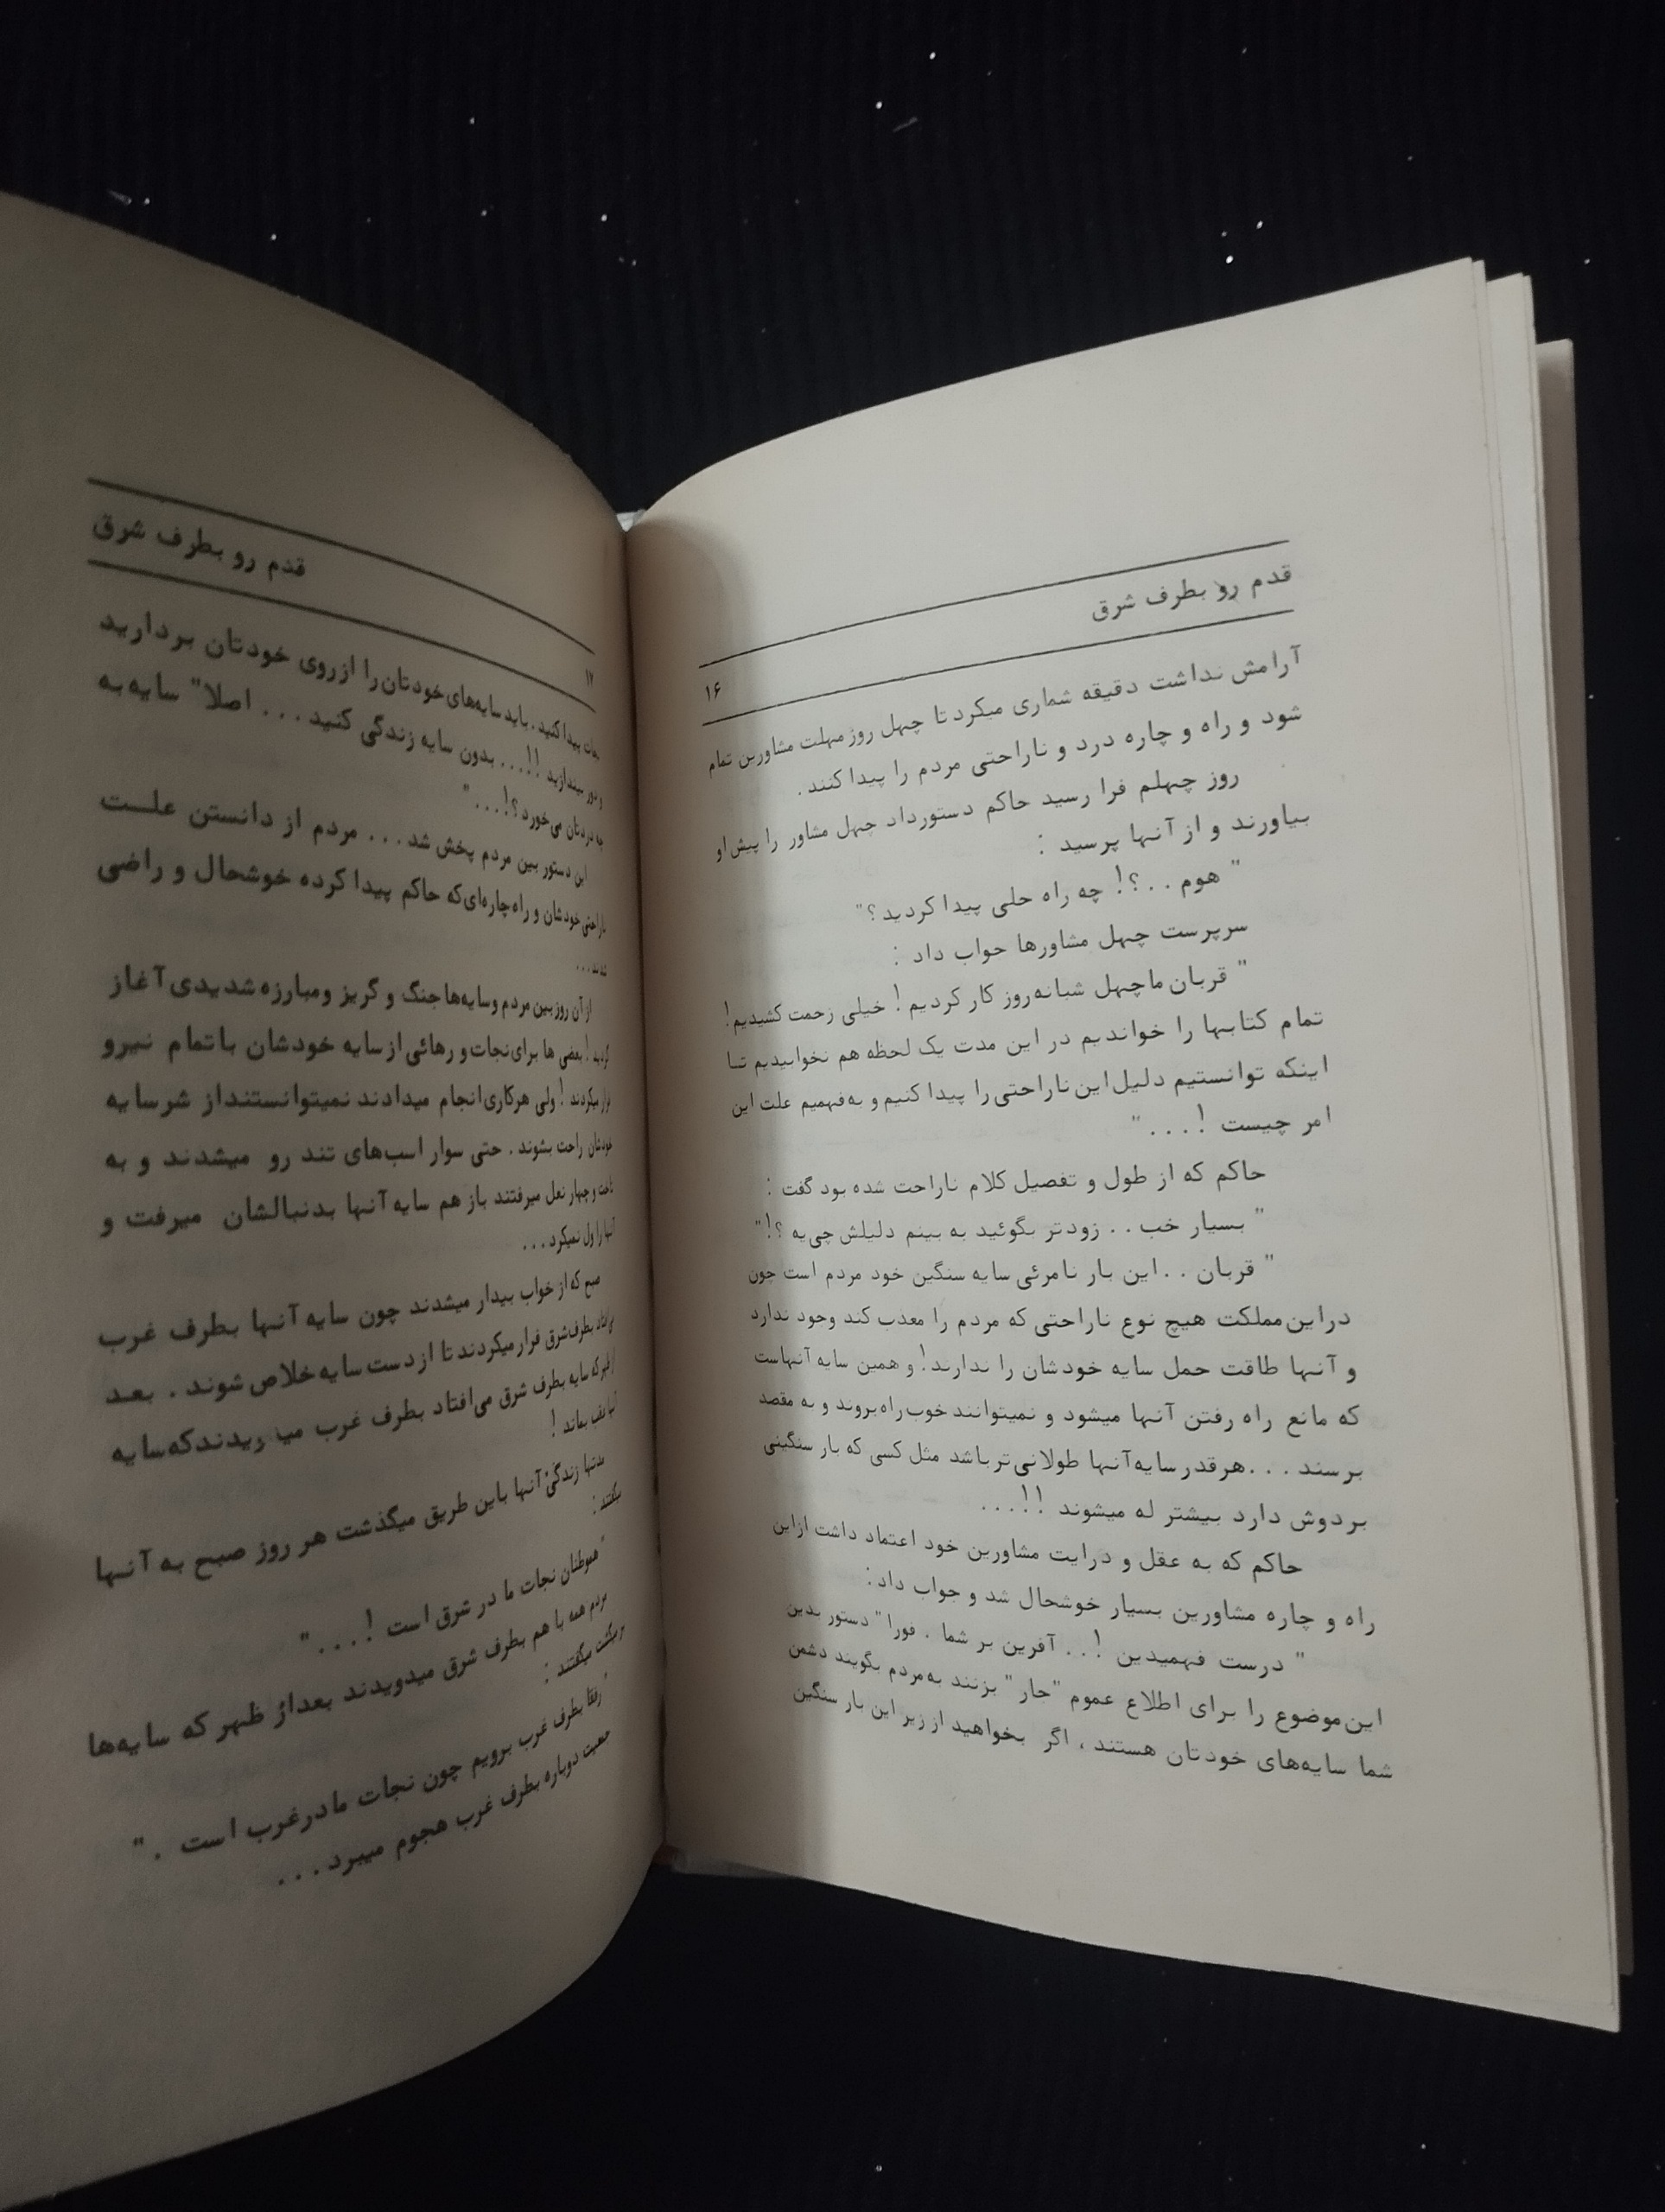 قدم رو بطرف شرق
۱۶
آرامش نداشت دقیقه شماری میکرد تا چهل روز مهلت مشاورین تمام
شود و راه و چاره درد و ناراحتی مردم را پیدا کنند .
روز چهلم فرا رسید حاکم دستور داد چهل مشاور را پیش او
بیاورند و از آنها پرسید :
" هوم . . ؟! چه راه حلی پیدا کردید ؟"
سرپرست چهل مشاورها جواب داد :
" قربان ما چهل شبانه‌روز کار کردیم ! خیلی زحمت کشیدیم !
تمام کتابها را خواندیم در این مدت یک لحظه هم نخوابیدیم تا
اینکه توانستیم دلیل این ناراحتی را پیدا کنیم و به‌فهمیم علت این
امر چیست ! . . . "
حاکم که از طول و تفصیل کلام ناراحت شده بود گفت :
" بسیار خب . . زودتر بگوئید به بینم دلیلش چی‌یه ؟!"
" قربان . . این بار نامرئی سایه سنگین خود مردم است چون
در این مملکت هیچ نوع ناراحتی که مردم را معذب کند وجود ندارد
و آنها طاقت حمل سایه خودشان را ندارند ! و همین سایه آنهاست
که مانع راه رفتن آنها میشود و نمیتوانند خوب راه بروند و به مقصد
برسند . . . هر قدر سایه آنها طولانی تر باشد مثل کسی که بار سنگینی
بر دوش دارد بیشتر له میشوند !! . . .
حاکم که به عقل و درایت مشاورین خود اعتماد داشت از این
راه و چاره مشاورین بسیار خوشحال شد و جواب داد :
" درست فهمیدین ! . . آفرین بر شما . فورا" دستور بدین
این موضوع را برای اطلاع عموم "جار" بزنند به‌مردم بگویند دشمن
شما سایه‌های خودتان هستند ، اگر بخواهید از زیر این بار سنگین
قدم رو بطرف شرق
۱۷
نجات پیدا کنید . باید سایه‌های خودتان را از روی خودتان بردارید
و دور بیندازید !! . . . بدون سایه زندگی کنید . . . اصلا" سایه به
چه دردتان می‌خورد ؟! . . . "
این دستور بین مردم پخش شد . . . مردم از دانستن علت
ناراحتی خودشان و راه چاره‌ای که حاکم پیدا کرده خوشحال و راضی
شدند . . .
از آن روز بین مردم و سایه‌ها جنگ و گریز و مبارزه شدیدی آغاز
گردید ! بعضی ها برای نجات و رهائی از سایه خودشان با تمام نیرو
فرار میکردند ! ولی هر کاری انجام میدادند نمیتوانستند از شر سایه
خودشان راحت بشوند . حتی سوار اسب‌های تند رو میشدند و به
تاخت و چهار نعل میرفتند باز هم سایه آنها بدنبالشان میرفت و
آنها را ول نمیکرد . . .
صبح که از خواب بیدار میشدند چون سایه آنها بطرف غرب
می‌افتاد بطرف شرق فرار میکردند تا از دست سایه خلاص شوند . بعد
از ظهر که سایه بطرف شرق می‌افتاد بطرف غرب میدویدند که سایه
آنها عقب بماند !
مدتها زندگی آنها باین طریق میگذشت هر روز صبح به آنها
میگفتند :
" هموطنان نجات ما در شرق است ! . . . "
مردم همه با هم بطرف شرق میدویدند بعداز ظهر که سایه‌ها
بر میگشت میگفتند :
" رفقا بطرف غرب برویم چون نجات ما در غرب است . "
جمعیت دوباره بطرف غرب هجوم میبرد . . .